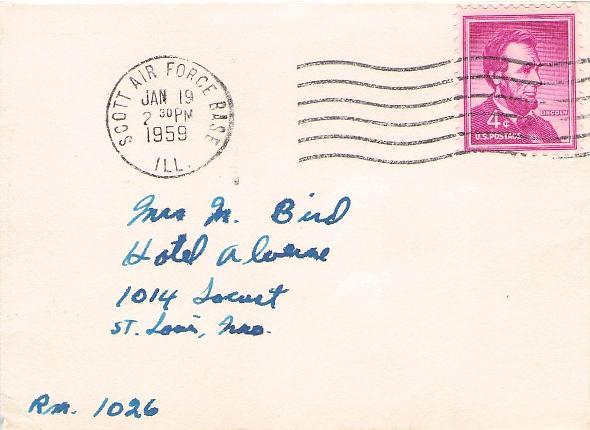 SCOTT AIR FORCE BASE
JAN 19
2 30 PM
1959
ILL.
LINCOLN
4¢
U.S. POSTAGE
Mrs M. Bird
Hotel Alverne
1014 Locust
St. Louis, Mo.
Rm. 1026